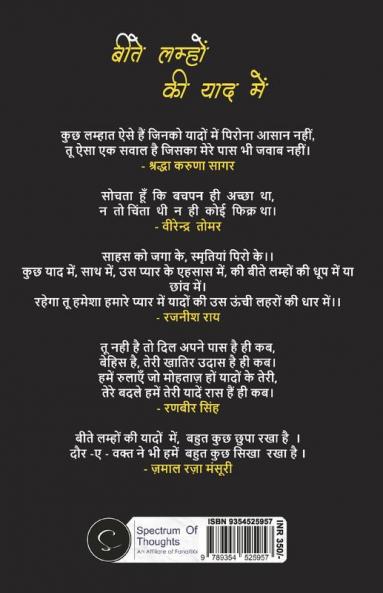 बीते लम्हों
की याद में
कुछ लम्हात ऐसे हैं जिनको यादों में पिरोना आसान नहीं,
तू ऐसा एक सवाल है जिसका मेरे पास भी जवाब नहीं।
- श्रद्धा करुणा सागर
सोचता हूँ कि बचपन ही अच्छा था,
न तो चिंता थी न ही कोई फिक्र था।
- वीरेन्द्र तोमर
साहस को जगा के, स्मृतियां पिरो के।।
कुछ याद में, साथ में, उस प्यार के एहसास में, की बीते लम्हों की धूप में या
छांव में।
रहेगा तू हमेशा हमारे प्यार में यादों की उस ऊंची लहरों की धार में।।
- रजनीश राय
तू नही है तो दिल अपने पास है ही कब,
बेहिस है, तेरी खातिर उदास है ही कब।
हमें रुलाएँ जो मोहताज़ हों यादों के तेरी,
तेरे बदले हमें तेरी यादें रास हैं ही कब।
- रणबीर सिंह
बीते लम्हों की यादों में, बहुत कुछ छुपा रखा है ।
दौर -ए - वक्त ने भी हमें बहुत कुछ सिखा रखा है ।
- ज़माल रज़ा मंसूरी
S
Spectrum Of
Thoughts
An Affiliate of FanatiXx
ISBN 9354525957
9 789354 525957
INR 350/-